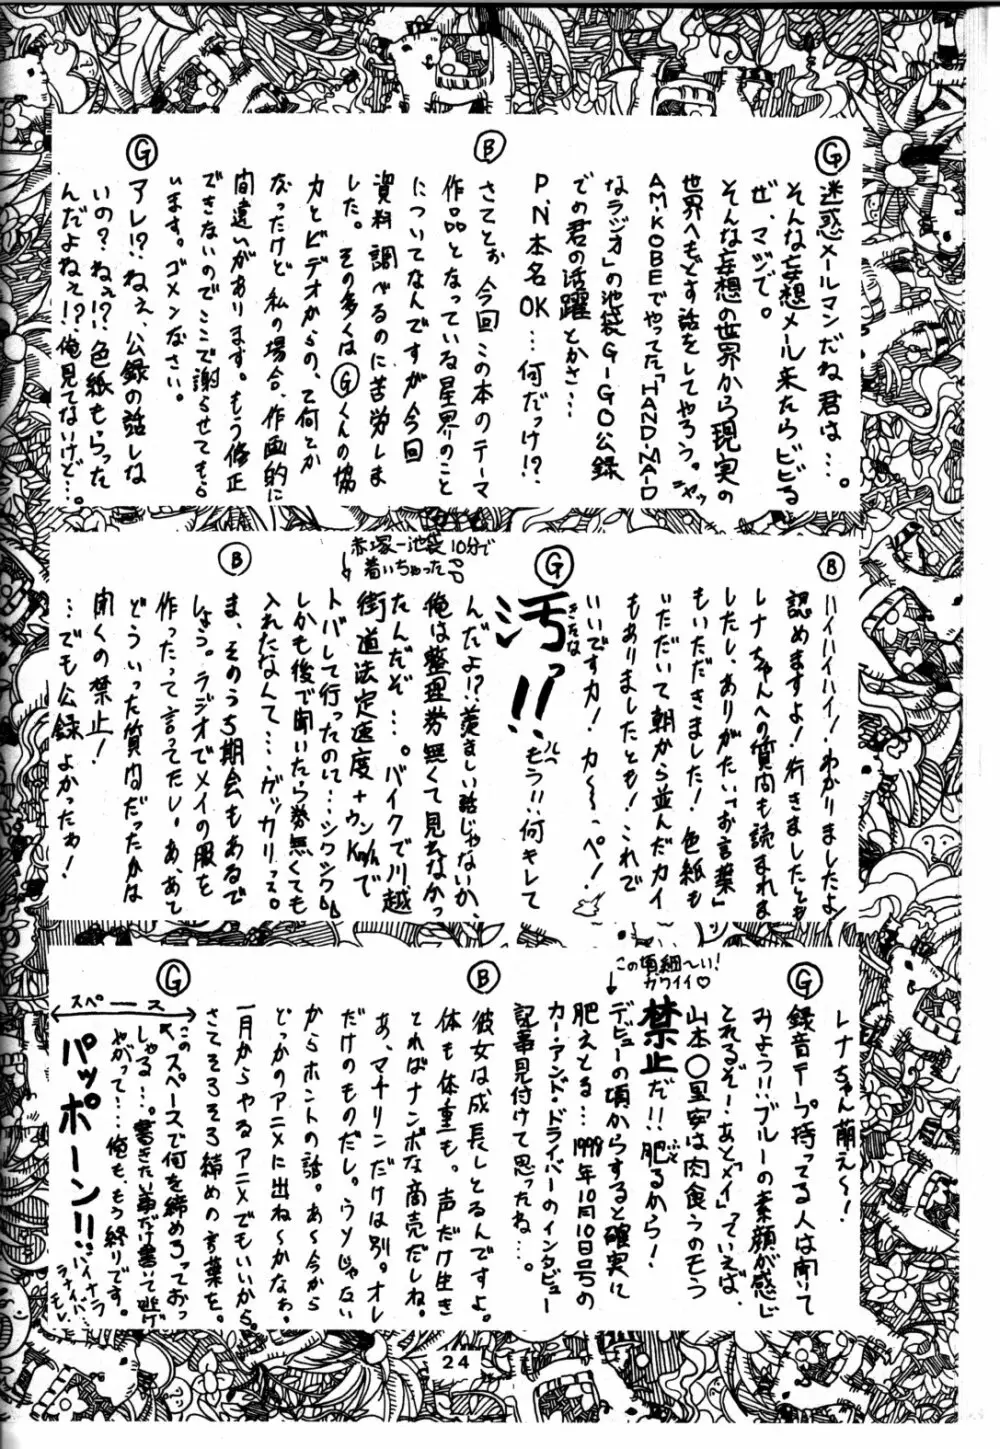 G
迷惑メールマンだね君は…。
そんな妄想メール来たらビビる
ぜ、マジで。
そんな妄想の世界から現実の
世界へもどす話をしてやろう。ニヤッ
AM・KOBEでやってた「HAND・MAID
なラジオ」の池袋G-GO公録
での君の活躍とかさ…
P.N.本名OK…何だっけ!?
B
さてとぉ、今回この本のテーマ
作品となっている星界のこと
についてなんですが今回
資料調べるのに苦労しま
した。その多くはGくんの協
力とビデオからの、で何とか
なったけど私の場合、作画的に
間違いがあります。もう修正
できないのでここで謝らせてもら
います。ゴメンなさい。
G
アレ!?ねぇ、公録の話しな
いの?ねぇ!?色紙もらった
んだよねぇ!?俺見てないけど…。
B
ハイハイハイ!わかりましたよ!
認めますよ!行きましたとも
レナちゃんへの質問も読まれま
したし、ありがたい"お言葉"
もいただきました!色紙も
いただいて朝から並んだカイ
もありましたとも!これで
いいですカ!カ〜〜ッペ!
G
汚っ!!
きたな
もう!!何キレて
んだよ!?羨ましい話じゃないか、
俺は整理券無くて見れなかっ
たんだぞ…。バイクで川越
街道法定速度+ウンkm/hで
トバして行ったのに…シクシク
しかも後で聞いたら券無くても
入れたなんて…ガッカリっス。
赤塚-池袋10分で
着いちゃった
B
ま、そのうち期会もあるで
しょう。ラジオでメイの服を
作ったって言ってたし。あ、あと
どういった質問だったかは
聞くの禁止!
…でも公録よかったヮ!
レナちゃん萌え〜!
G
録音テープ持ってる人は聞いて
みよう!!ブルーの素顔が感じ
とれるぞ!あと「メイ」っていえば、
山本○里安は肉食うのもう
禁止だ!!肥るから!
デビューの頃からすると確実に
肥えとる…1998年10月10日号の
カー・アンド・ドライバーのインタビュー
記事見付けて思ったね…。
この頃細〜い!
カワイイ♡
B
彼女は成長しとるんですよ。
体も体重も。声だけ生き
とればナンボな商売だしね。
あ、マチリンだけは別。オレ
だけのものだし。ウソじゃない
からホントの話。あ〜今から
どっかのアニメに出ね〜かなぁ。
一月からやるアニメでもいいから。
さてそろそろ締めの言葉を。
G
スペース
このスペースで何を締めろっておっ
しゃる…。書きたい事だけ書いて逃げ
やがって…俺も、もう終りです。
パッポーン!!
バイナラ
ラナイバ…
24